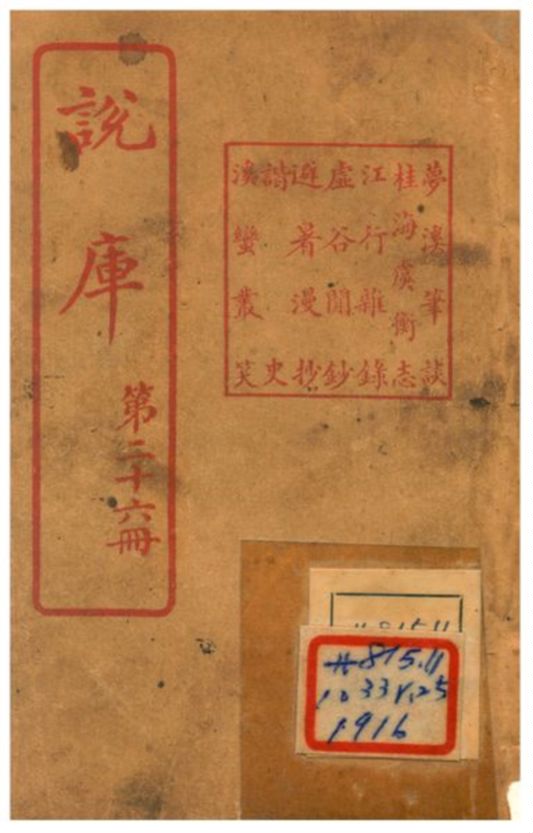 說庫
第二十六冊
夢溪筆談
桂海虞衡志
江行雜錄
虛谷閒鈔
避暑漫抄
諧史
溪蠻叢笑
#815.11
#815.11
1033 V.25
1916